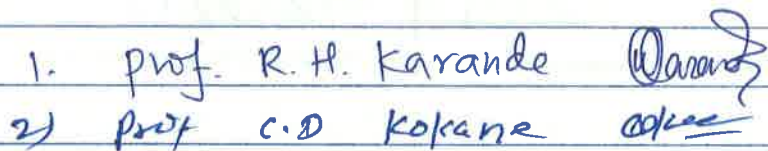 1. Prof. R. H. Karande
2) Prof C.D Kokane